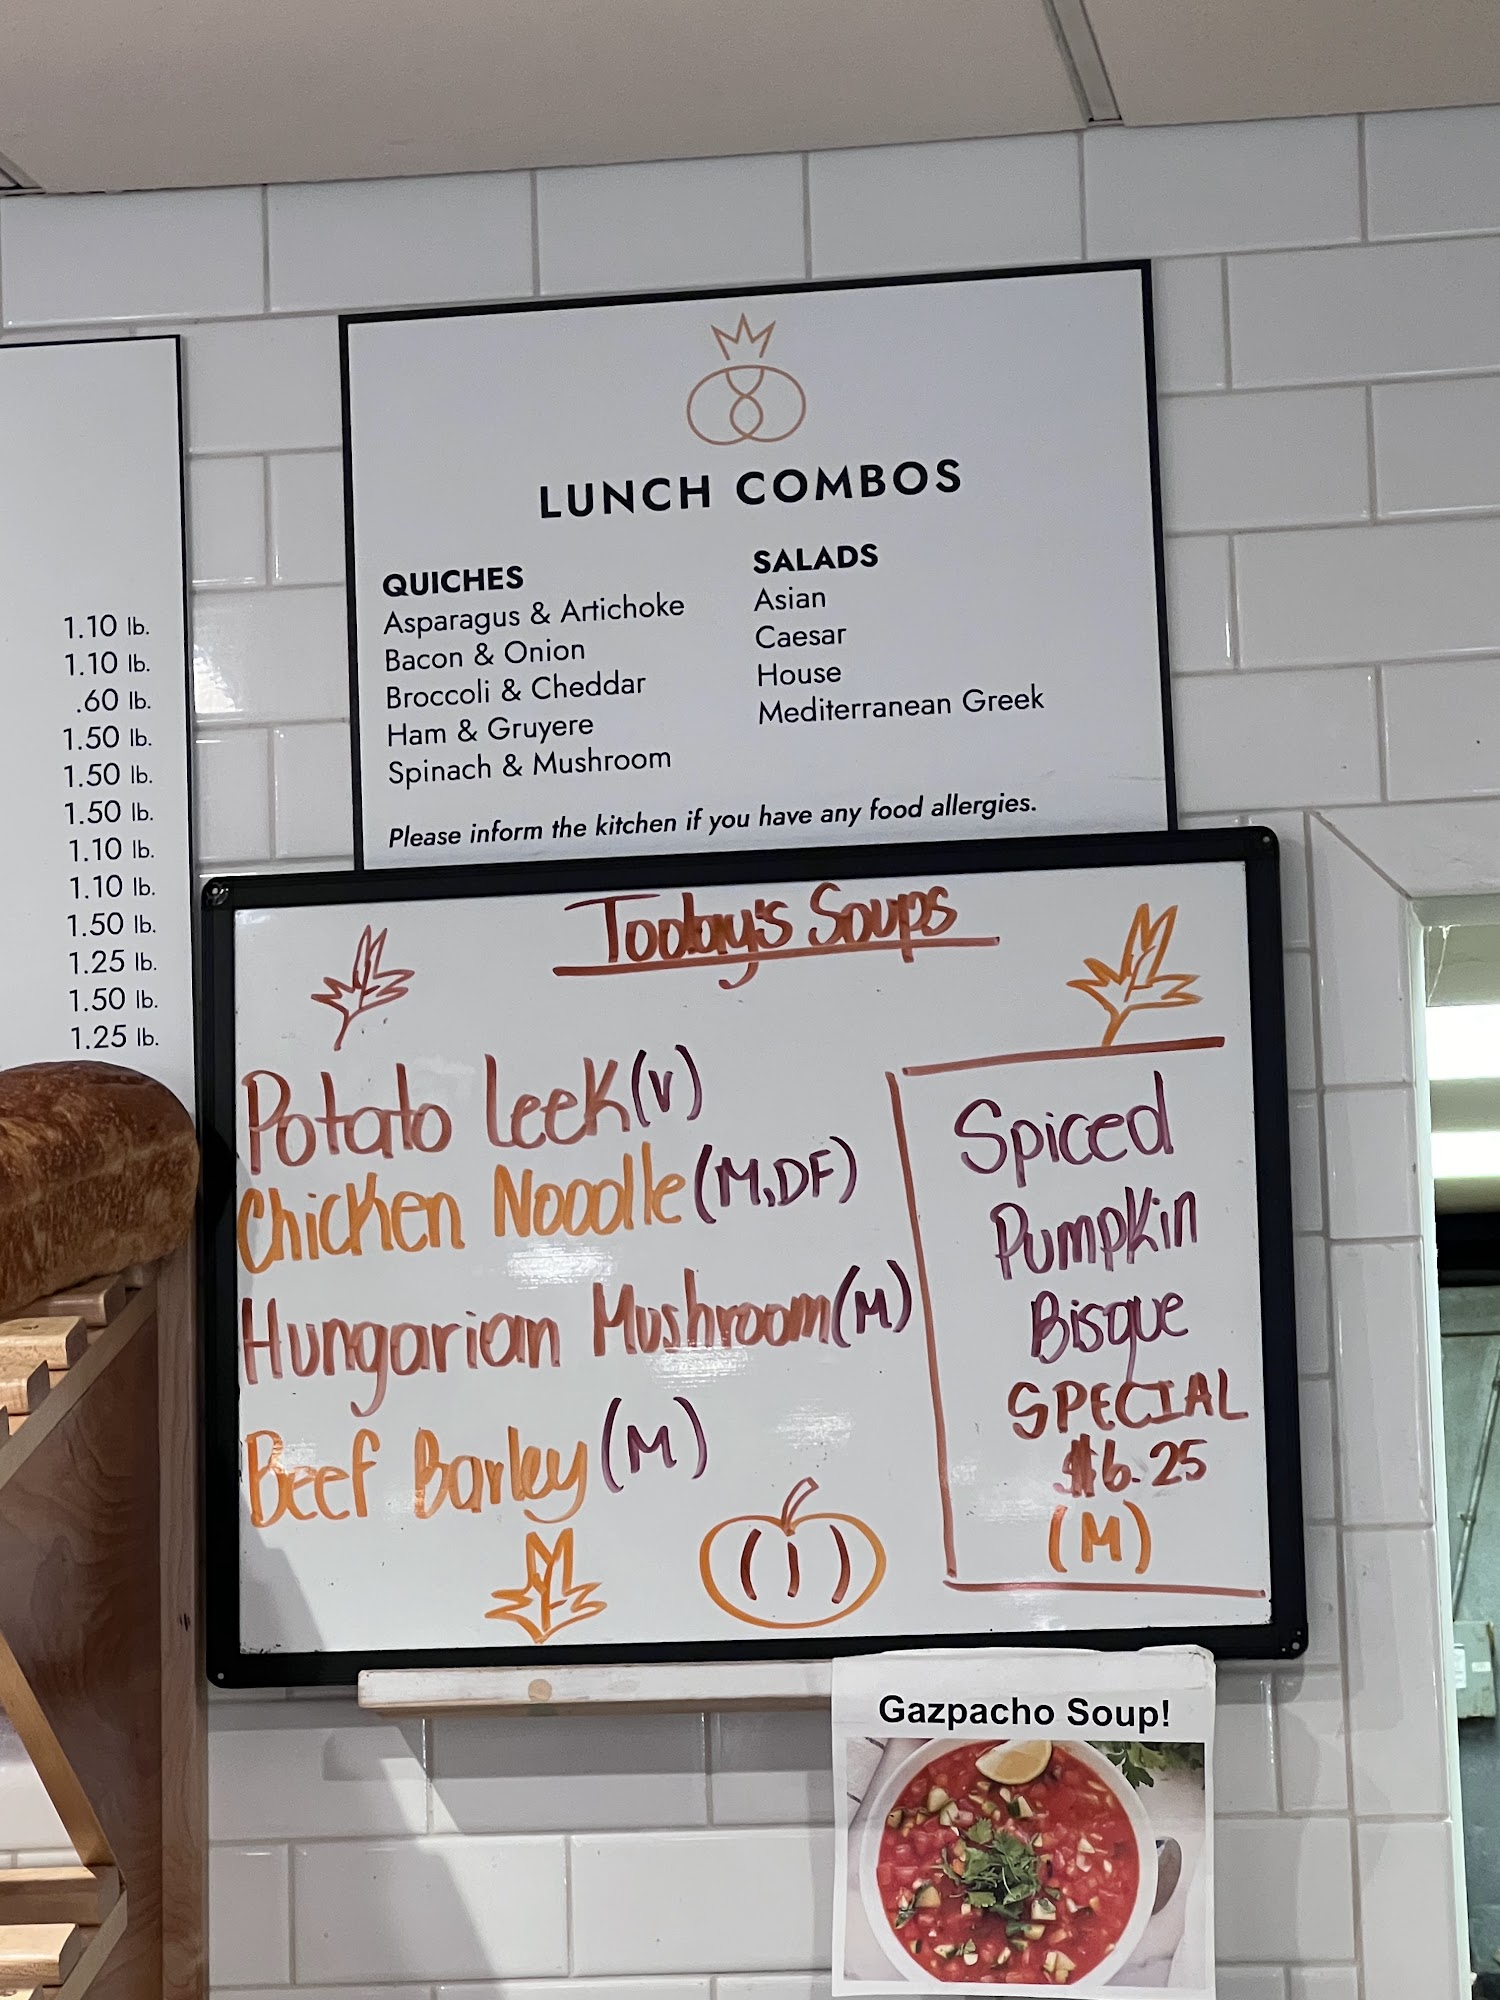 1.10 lb.
1.10 lb.
.60 lb.
1.50 lb.
1.50 lb.
1.50 lb.
1.10 lb.
1.10 lb.
1.50 lb.
1.25 lb.
1.50 lb.
1.25 lb.
LUNCH COMBOS
QUICHES
Asparagus & Artichoke
Bacon & Onion
Broccoli & Cheddar
Ham & Gruyere
Spinach & Mushroom
SALADS
Asian
Caesar
House
Mediterranean Greek
Please inform the kitchen if you have any food allergies.
Today's Soups
Potato Leek (V)
Chicken Noodle (M,DF)
Hungarian Mushroom (M)
Beef Barley (M)
Spiced
Pumpkin
Bisque
SPECIAL
$6.25
(M)
Gazpacho Soup!